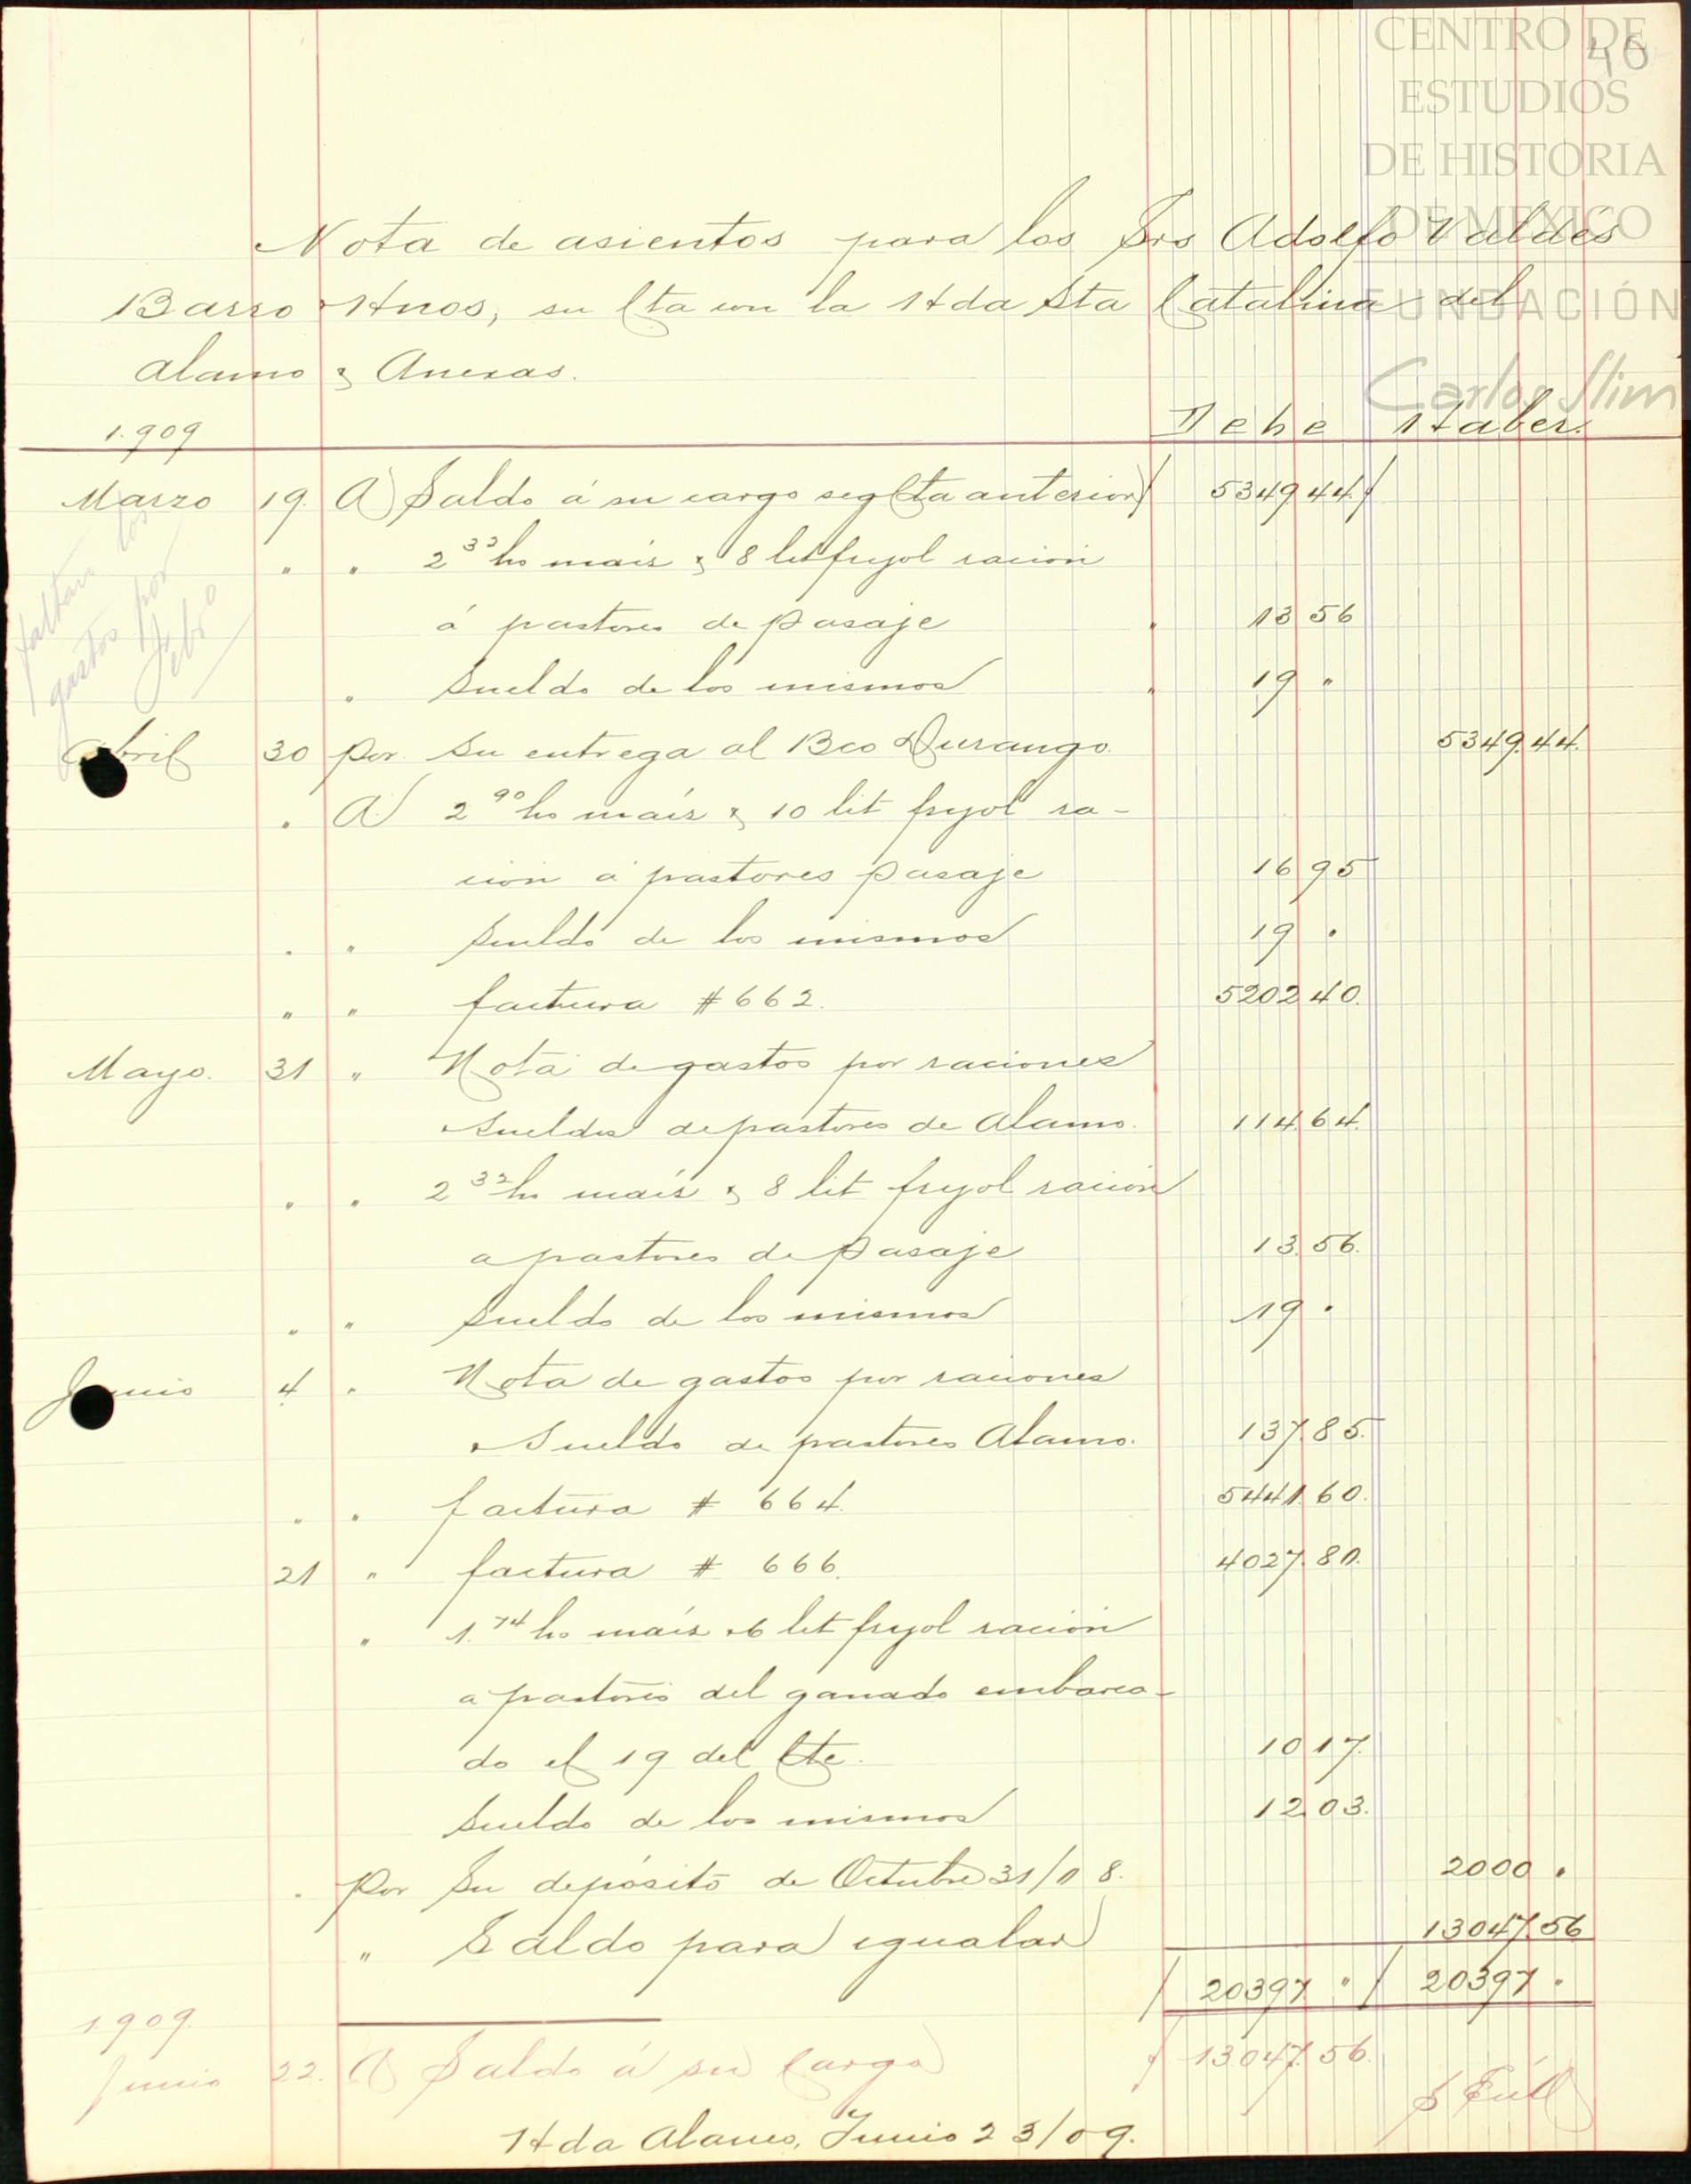 CENTRO DE
ESTUDIOS
DE HISTORIA
DE MEXICO
FUNDACIÓN
Carlos Slim
46
Nota de asientos para los Srs Adolfo Valdés
Barro Hnos, su Cta con la Hda Sta Catalina del
Alamo & Anexas.
1.909 Debe Haber.
Marzo 19. A Saldo á su cargo seg Cta anterior 5349 44
" " 2 32 hs maís & 8 lit frijol ración
á pastores de Pasaje 13 56
" Sueldo de los mismos 19 "
faltan los
gastos por
Febro
Abril 30 Por su entrega al Bco Durango. 5349.44.
" A 2 90 hs maís & 10 lit frijol ra-
ción á pastores Pasaje 16 95
" " Sueldo de los mismos 19 "
" " factura # 662. 5202 40.
Mayo. 31 " Nota de gastos por raciones
Sueldos de pastores de Alamo. 114.64.
" " 2 32 hs maís & 8 lit frijol ración
a pastores de Pasaje 13.56.
" " Sueldo de los mismos 19 "
Junio 4 " Nota de gastos por raciones
Sueldo de pastores Alamo. 137.85.
" " factura # 664. 5441.60.
21 " factura # 666. 4027.80.
" 1. 74 hs maís & 6 lit frijol ración
a pastores del ganado embarca-
do el 19 del Cte. 10 17.
Sueldo de los mismos 12.03.
" Por Su depósito de Octubre 31/08. 2000 "
" Saldo para igualar 13047.56
20397. " 20397 "
1.909.
Junio 22. A Saldo á su Cargo 13.047.56.
Hda Alamo, Junio 23/09.